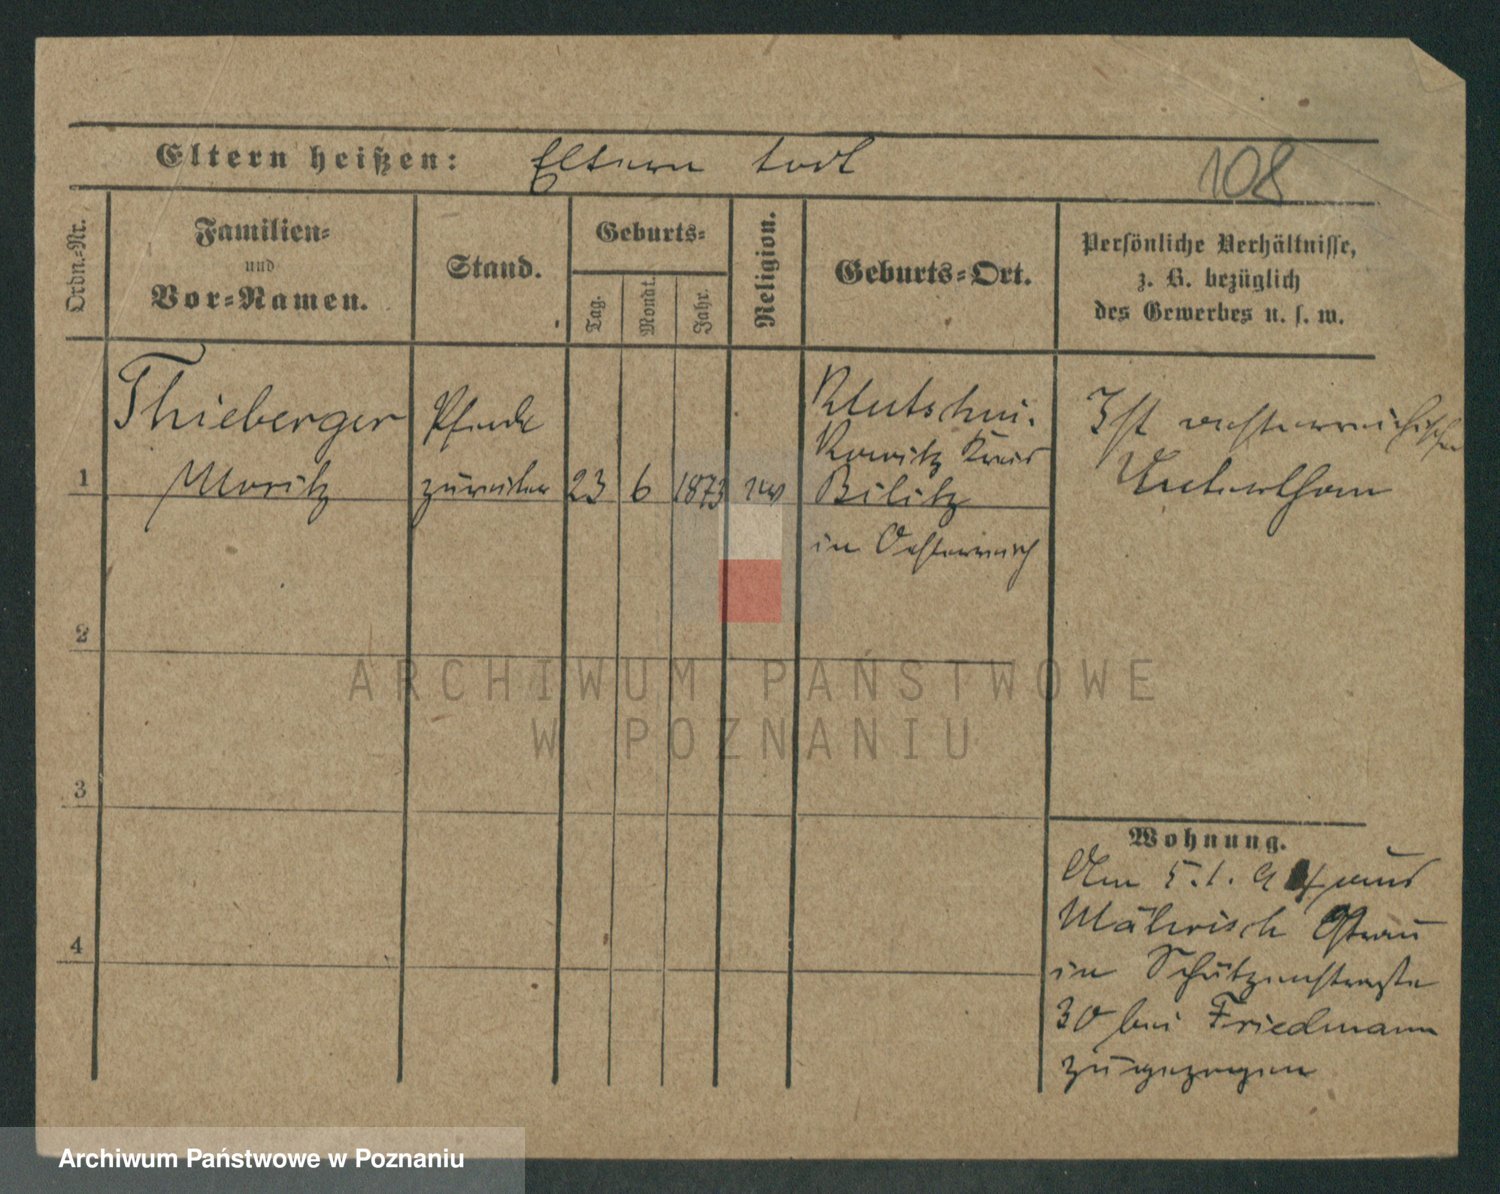 Eltern heißen: Eltern todt
108
Ordn.-Nr.
Familien-
und
Vor-Namen.
Stand.
Geburts-
Tag.
Monat.
Jahr.
Religion.
Geburts-Ort.
Persönliche Verhältnisse,
z. B. bezüglich
des Gewerbes u. s. w.
Thieberger
Moritz
Pferde
1
23 6 1873
Kreis
Bilitz
in Oesterreich
Ist oesterreichischer
Unterthan
2
3
4
Wohnung.
Am 5.1. aus
Mährisch Ostrau
in Schützenstraße
30 bei Friedmann
zugezogen
ARCHIWUM PAŃSTWOWE
W POZNANIU
Archiwum Państwowe w Poznaniu